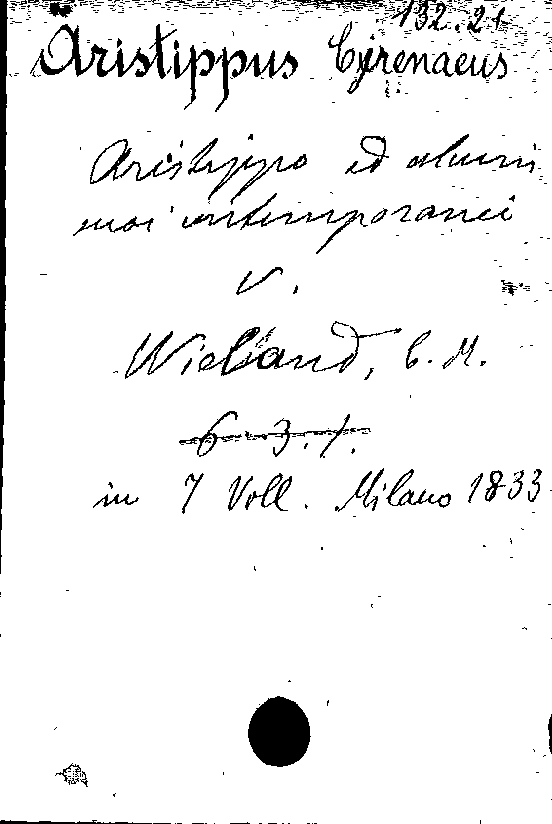 132.21
Aristippus Cyrenaeus
Aristippo ed alcuni
suoi contemporanei
v.
Wieland, C. M.
6. 3. 1.
in 7 Voll. Milano 1833